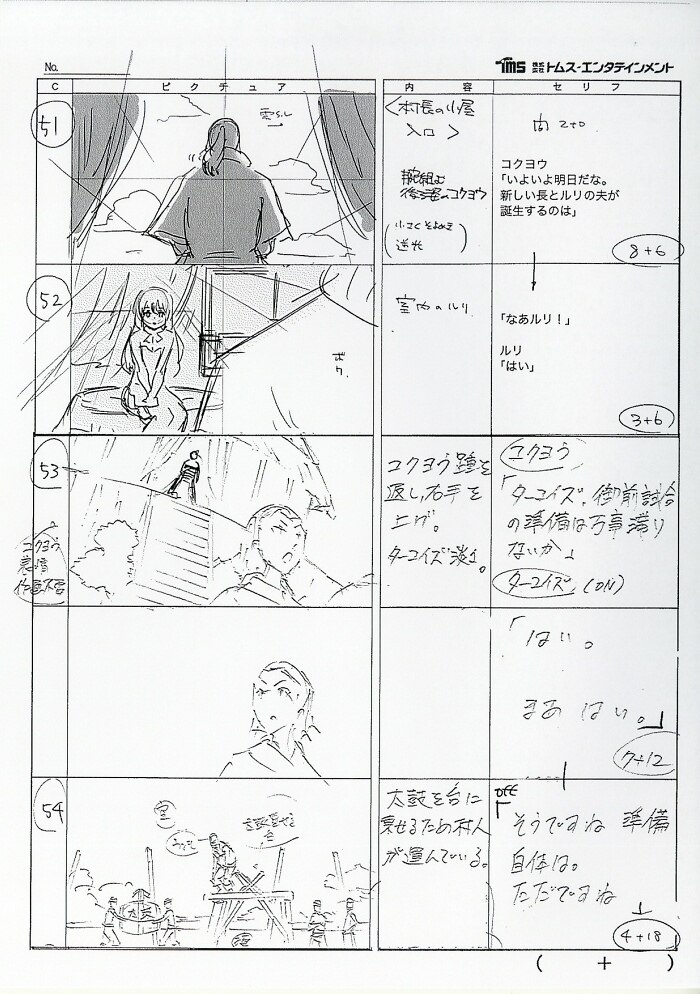 No.
TMS 株式会社 トムス・エンタテインメント
C ピクチュア 内 容 セリフ
51
雲SL
<村長の小屋
入口>
腕組む
後ろ姿のコクヨウ
(小さくそよめき
逆光)
コクヨウ
「いよいよ明日だな。
新しい長とルリの夫が
誕生するのは」
8+6
52
ボケ
室内のルリ
「なあルリ!」
ルリ
「はい」
3+6
53
コクヨウ
表情
コクヨウ踵を
返し、右手を
上げ。
コクヨウ
「ターコイズ、御前試合
の準備は万事滞り
ないか」
ターコイズ (ON)
「はい。
まあ はい。」
7+12
54
空
太鼓
太鼓を台に
乗せるため村人
が運んでいる。
OFF
「そうですね 準備
自体は。
ただですね
4+18
( + )